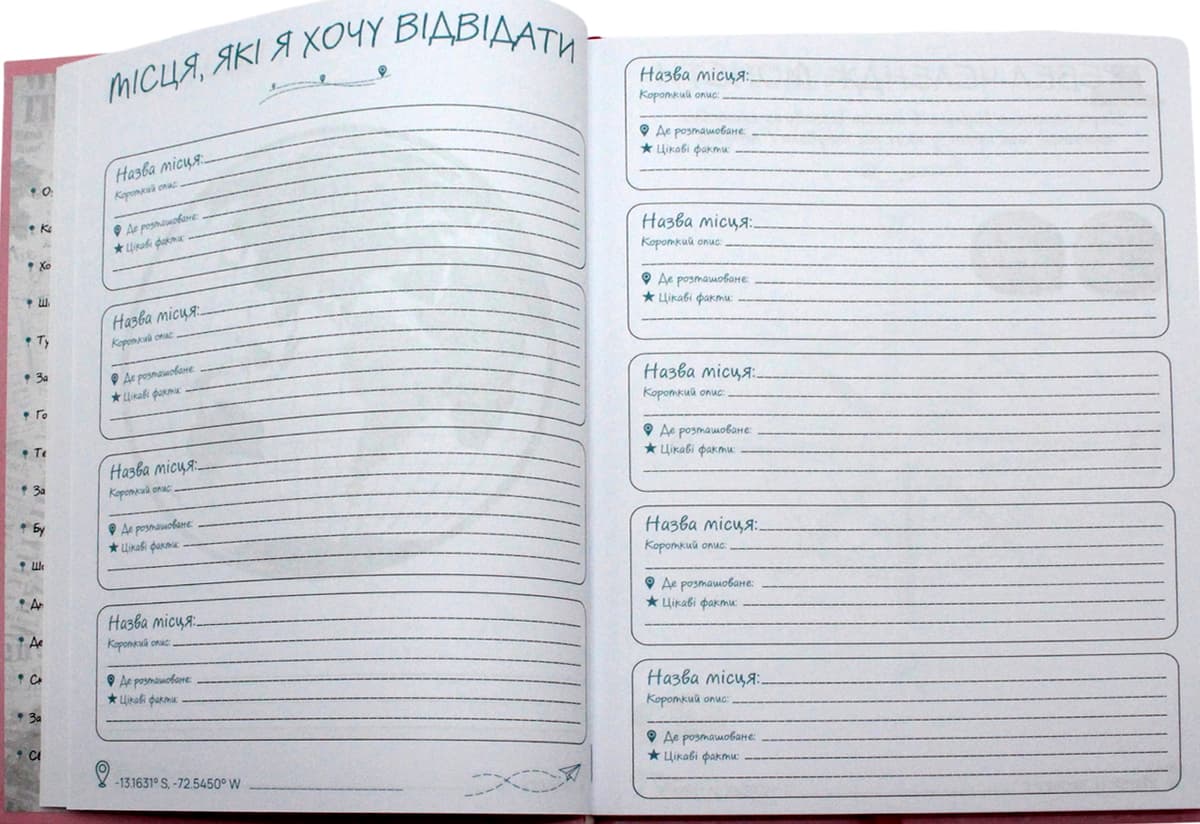 МІСЦЯ, ЯКІ Я ХОЧУ ВІДВІДАТИ
Назва місця:
Короткий опис:
Де розташоване:
Цікаві факти:
Назва місця:
Короткий опис:
Де розташоване:
Цікаві факти:
Назва місця:
Короткий опис:
Де розташоване:
Цікаві факти:
Назва місця:
Короткий опис:
Де розташоване:
Цікаві факти:
-13.1631° S, -72.5450° W
Назва місця:
Короткий опис:
Де розташоване:
Цікаві факти:
Назва місця:
Короткий опис:
Де розташоване:
Цікаві факти:
Назва місця:
Короткий опис:
Де розташоване:
Цікаві факти:
Назва місця:
Короткий опис:
Де розташоване:
Цікаві факти:
Назва місця:
Короткий опис:
Де розташоване:
Цікаві факти: